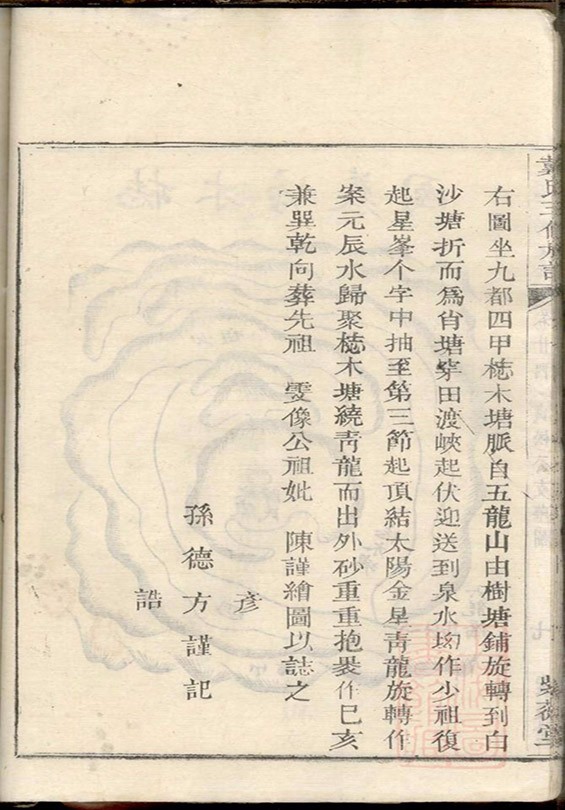 右圖坐九都四甲梽木塘脈自五龍山由樹塘鋪旋轉到白
沙塘折而爲肖塘穿田渡峽起伏迎送到泉水坳作少祖復
起星峯个字中抽至第三節起頂結太陽金星靑龍旋轉作
案元辰水歸聚梽木塘繞靑龍而出外砂重重抱裹作巳亥
兼巽乾向葬先祖 雯像公祖妣 陳謹繪圖以誌之
彦
孫德方謹記
誥